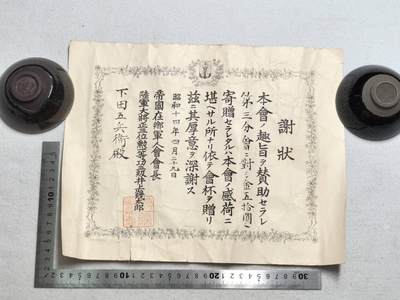 謝狀
本會ノ趣旨ヲ賛助セラレ
第三分會ニ對シ金五拾圓ヲ
寄贈セラレタルハ本會ノ感荷ニ
堪ヘサル所ナリ依テ會杯ヲ贈リ
玆ニ其厚意ヲ深謝ス
昭和十四年四月二十九日
帝國在鄉軍人會會長
陸軍大將正位勲等功級井上幾太郎
下田五兵衛殿
10
20
10
20
30